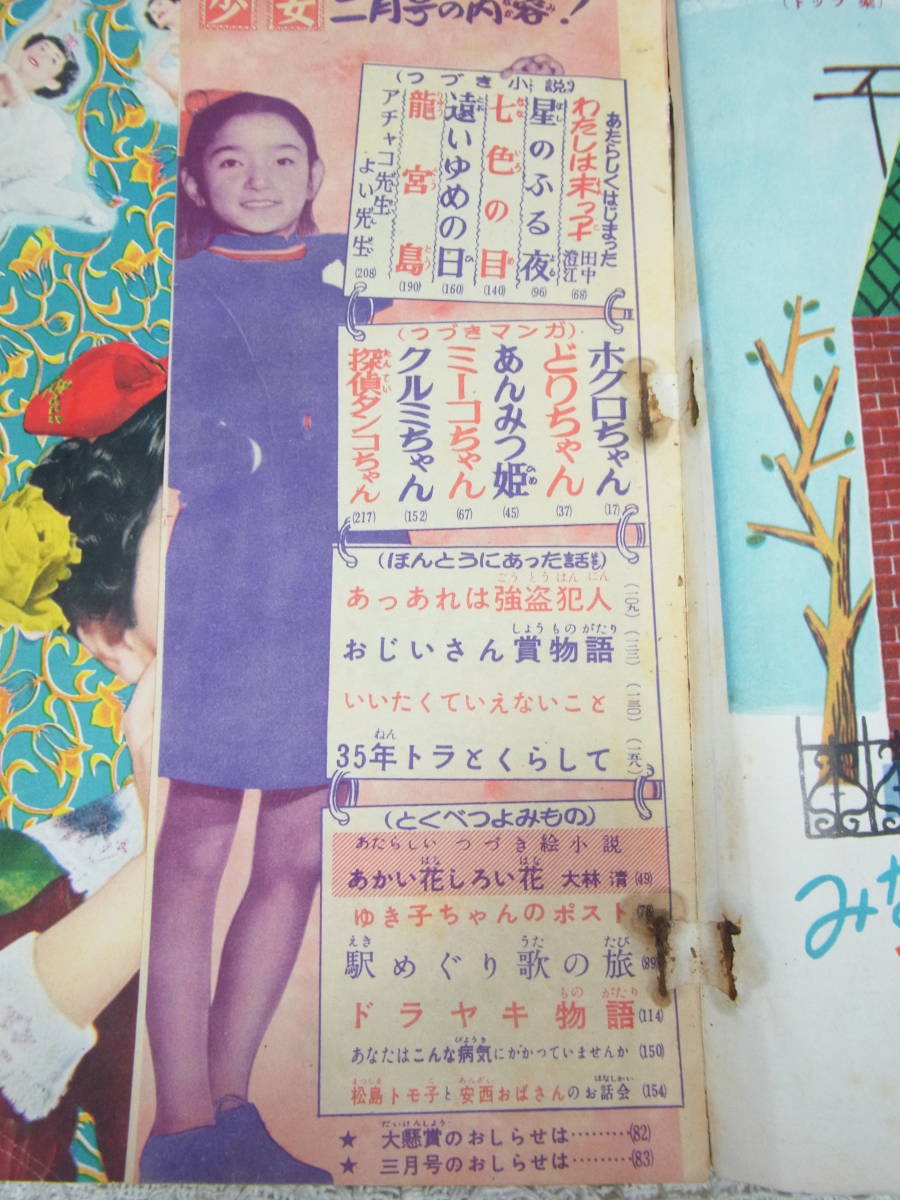 少女
二月号の内容!
(つづき小説)
あたらしくはじまった
わたしは末っ子 田中澄江 (68)
星のふる夜 (96)
七色の目 (140)
遠いゆめの日 (160)
龍宮島 (190)
アチャコ先生よい先生 (208)
(つづきマンガ)
ホクロちゃん (17)
どりちゃん (37)
あんみつ姫 (45)
ミーコちゃん (67)
クルミちゃん (152)
探偵タンコちゃん (217)
(ほんとうにあった話)
あっあれは強盗犯人 (一〇九)
おじいさん賞物語 (一二二)
いいたくていえないこと (一三〇)
35年トラとくらして (一五八)
(とくべつよみもの)
あたらしい つづき絵小説
あかい花しろい花 大林清 (49)
ゆき子ちゃんのポスト
駅めぐり歌の旅 (89)
ドラヤキ物語 (114)
あなたはこんな病気にかかっていませんか (150)
松島トモ子と安西おばさんのお話会 (154)
★ 大懸賞のおしらせは………(82)
★ 三月号のおしらせは………(83)
みな